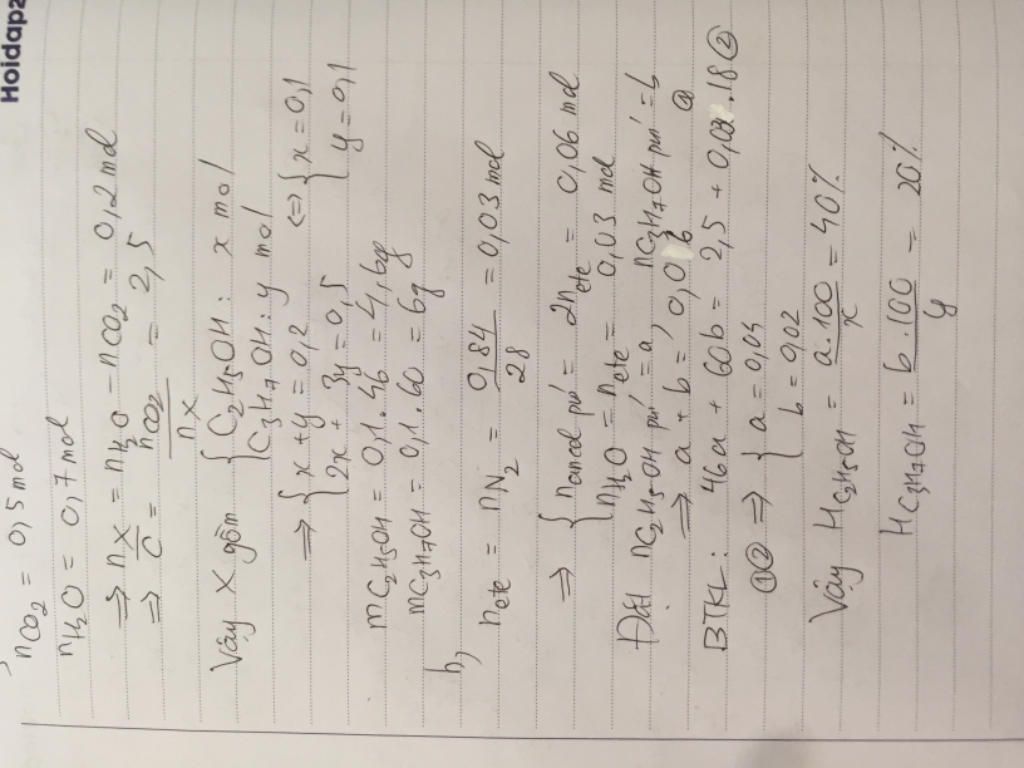 Hoidap2
nCO2 = 0,5 mol
nH2O = 0,7 mol
⇒ nX = nH2O - nCO2 = 0,2 mol
⇒ C̅ = nCO2 / nX = 2,5
Vậy X gồm { C2H5OH : x mol
C3H7OH : y mol
⇒ { x + y = 0,2 ⇔ { x = 0,1
2x + 3y = 0,5 y = 0,1
mC2H5OH = 0,1.46 = 4,6g
mC3H7OH = 0,1.60 = 6g
b,
nete = nN2 = 0,84 / 28 = 0,03 mol
⇒ { nancol pư' = 2nete = 0,06 mol
nH2O = nete = 0,03 mol
Đặt nC2H5OH pư' = a, nC3H7OH pư' = b
⇒ a + b = 0,06 ①
BTKL: 46a + 60b = 2,5 + 0,03.18 ②
①② ⇒ { a = 0,04
b = 0,02
Vậy HC2H5OH = a.100 / x = 40%
HC3H7OH = b.100 / y = 20%